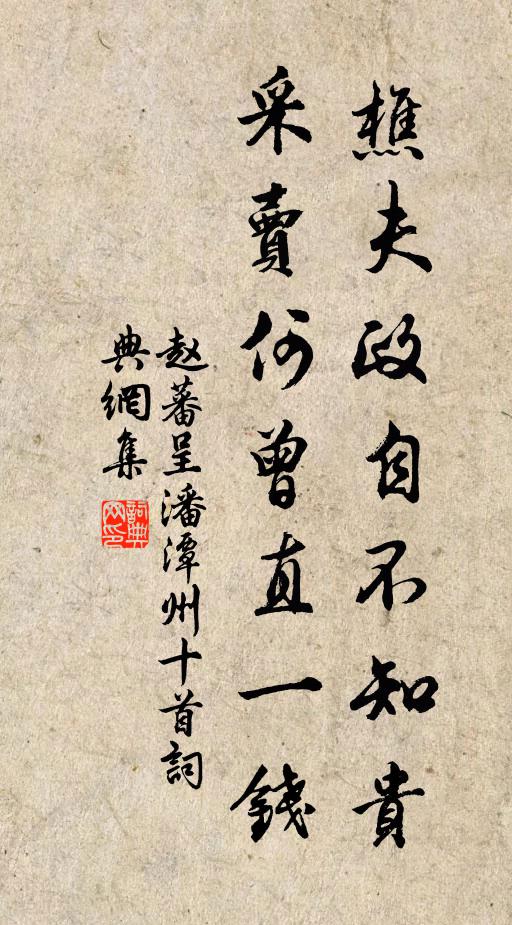 樵夫政自不知貴
采賣何曾直一錢
赵蕃呈潘潭州十首詞
典網集
詞典網印